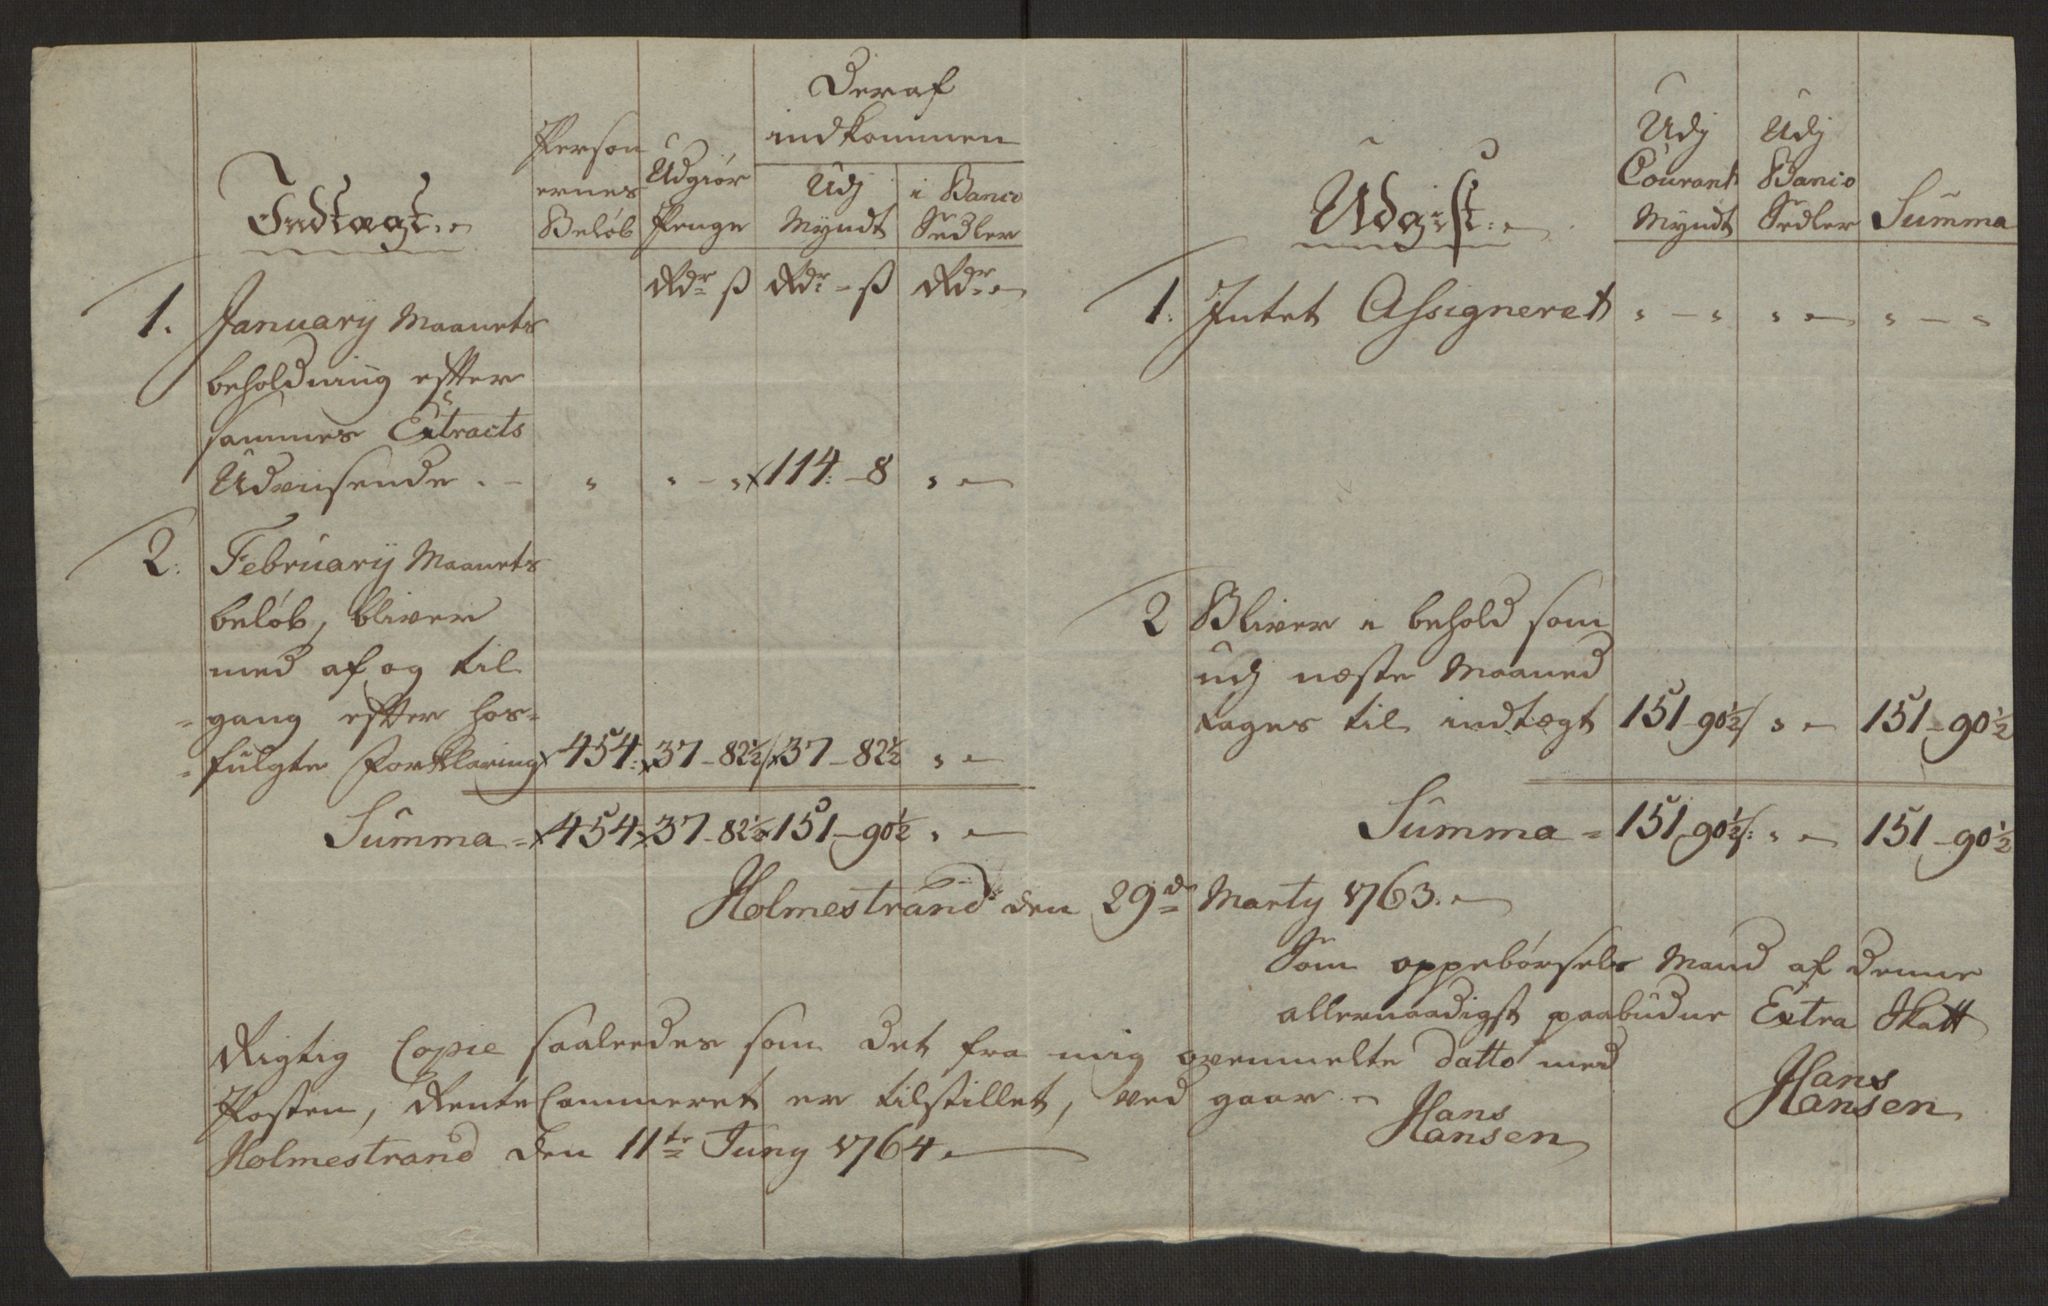 Indtægt
Person
ernes
Beløb
Udgiør
Penge
Deraf
indkommen
Udj
Myndt
i Banco
Sedler
Rdr ß Rdr - ß Rdr
1. January Maanets
beholdning effter
sammes Extracts
Udviisende . - " " - " 114: - 8 "
2. February Maanets
beløb, bliver
med af og til
gang effter hos-
fulgte Forklaring 454: 37 - 82½ 37 - 82½ "
Summa 454 37 - 82½ 151 - 90½ "
Udgift
Udj
Courant
Myndt
Udj
Banco
Sedler
Summa
1. Intet Assigneret " - " " " - "
2 Bliver i behold som
udj næste Maaned
tages til indtægt 151 - 90½ " 151 - 90½
Summa 151 90½ " 151 - 90½
Holmestrand den 29d Marty 1763.
Som oppebørsels Mand af denne
allernaadigst paabudne Extra Skatt
Hans
Hansen
Rigtig Copie saaledes som det fra mig ovenmelte datto med
Posten, RenteCammeret er tilstillet, ved gaar
Hans
Hansen
Holmestrand den 11te Juny 1764